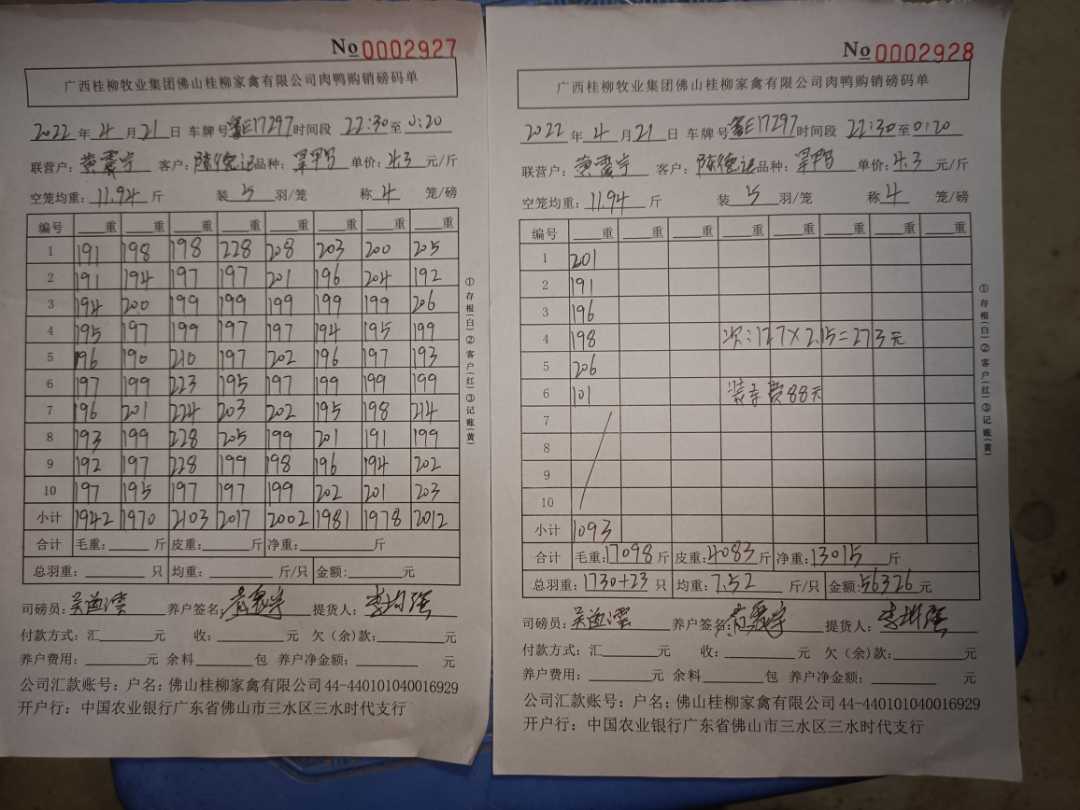 No 0002927
广西桂柳牧业集团佛山桂柳家禽有限公司肉鸭购销磅码单
2022年4月21日 车牌号 E17297 时间段 22:30至0:20
联营户: 黄 宇 客户: 陈德 品种: 单价: 4.3 元/斤
空笼均重: 11.94 斤 装 5 羽/笼 称 4 笼/磅
编号 重 重 重 重 重 重 重 重
1 191 198 198 228 208 203 200 205
2 191 194 197 197 201 196 204 192
3 194 200 199 199 199 199 199 206
4 195 197 199 197 197 194 195 199
5 196 190 210 197 202 196 197 193
6 197 199 223 195 197 199 199 199
7 196 201 224 203 202 195 198 214
8 193 199 228 205 199 201 191 199
9 192 197 228 199 198 196 194 202
10 197 195 197 197 199 202 201 203
小计 1942 1970 2103 2017 2002 1981 1978 2012
合计 毛重: 斤 皮重: 斤 净重: 斤
总羽重: 只 均重: 斤/只 金额: 元
司磅员: 吴 养户签名: 黄 宇 提货人: 李 强
付款方式: 汇 元 收: 元 欠(余)款: 元
养户费用: 元 余料 包 养户净金额: 元
公司汇款账号: 户名: 佛山桂柳家禽有限公司 44-440101040016929
开户行: 中国农业银行广东省佛山市三水区三水时代支行
①存根(白)②客户(红)③记账(黄)
No 0002928
广西桂柳牧业集团佛山桂柳家禽有限公司肉鸭购销磅码单
2022年4月21日 车牌号 E17297 时间段 22:30至0:20
联营户: 黄 宇 客户: 陈德 品种: 单价: 4.3 元/斤
空笼均重: 11.94 斤 装 5 羽/笼 称 4 笼/磅
编号 重 重 重 重 重 重 重 重
1 201
2 191
3 196
4 198 次: 127×2.15=273元
5 206
6 101 装车费88元
7
8
9
10
小计 1093
合计 毛重: 17098 斤 皮重: 4083 斤 净重: 13015 斤
总羽重: 1730+23 只 均重: 7.52 斤/只 金额: 56326 元
司磅员: 吴 养户签名: 黄 宇 提货人: 李 强
付款方式: 汇 元 收: 元 欠(余)款: 元
养户费用: 元 余料 包 养户净金额: 元
公司汇款账号: 户名: 佛山桂柳家禽有限公司 44-440101040016929
开户行: 中国农业银行广东省佛山市三水区三水时代支行
①存根(白)②客户(红)③记账(黄)